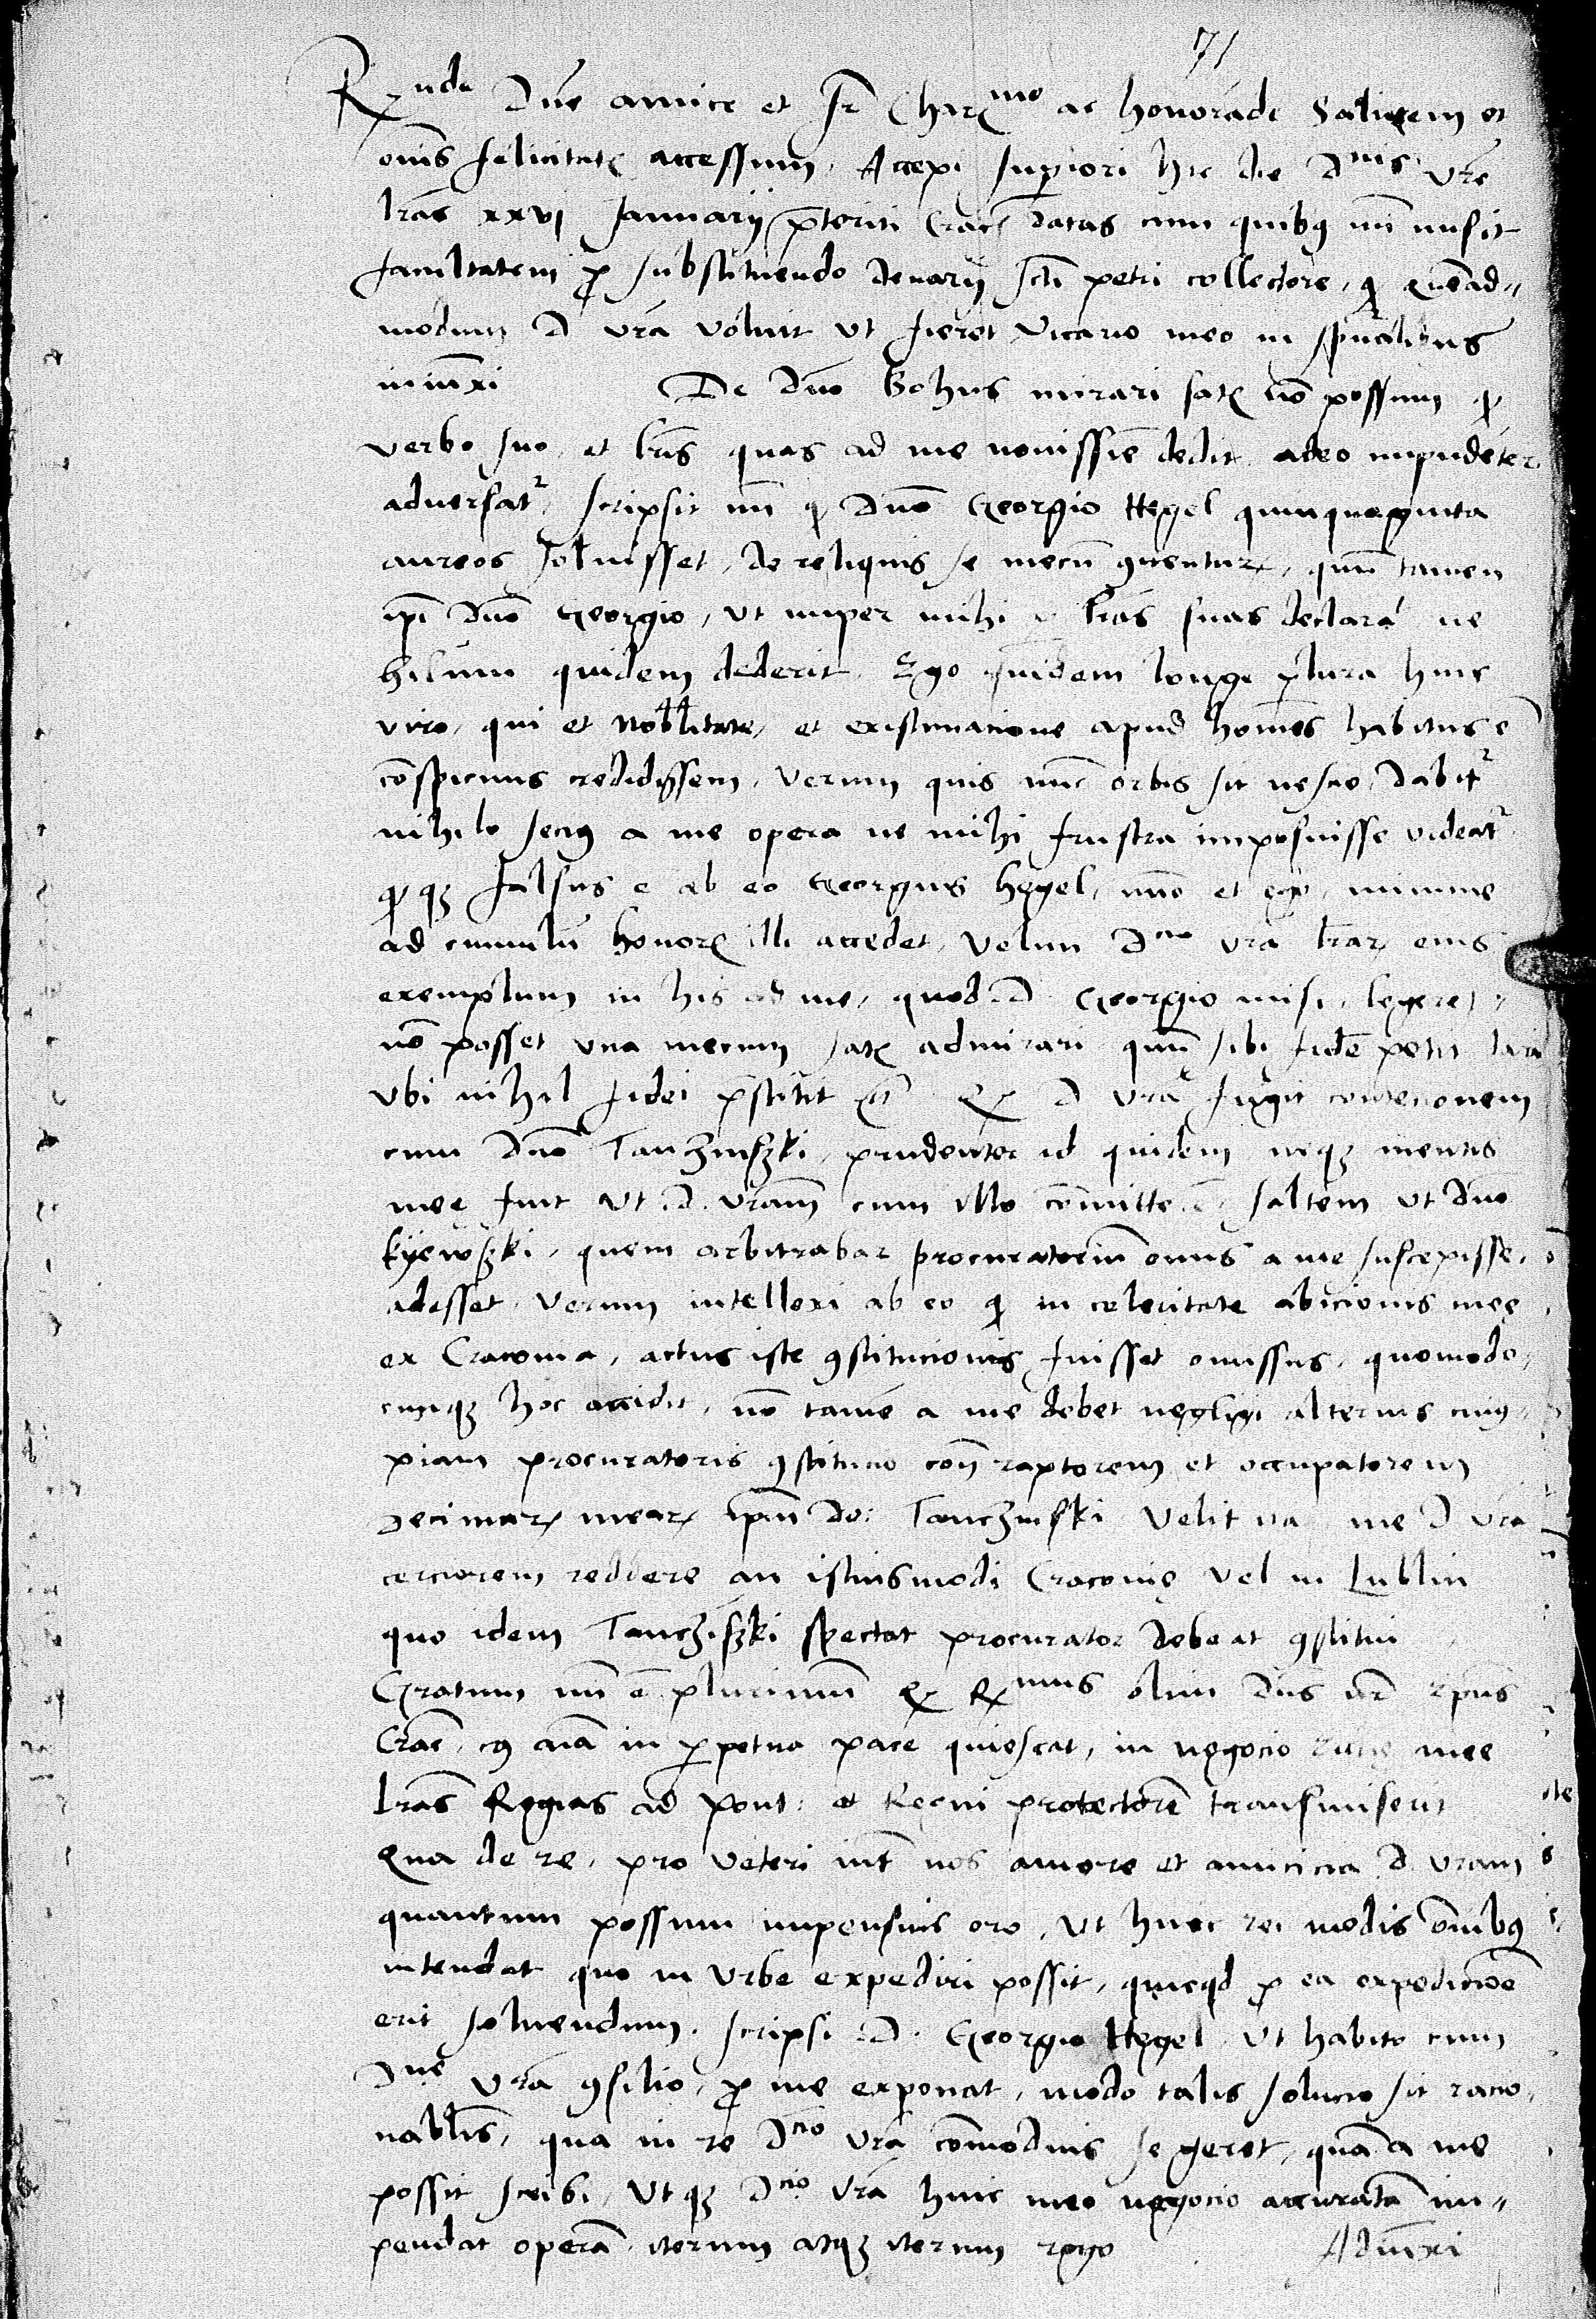 71
R^nde Dne amice et fr Char^mo ac honorade Salutem et
omis felicitatis accessum. Accepi superiori hic die D^nis vre
lras xxvi Januarij preteriti Crac datas cum quibus mi misit
facultatem pro substituendo denarij scti petri collectore, quod quemad-
modum D vra voluit ut fieret vicario meo in spualibus
iniunxi De dno Bohus mirari satis non possum quod
verbo suo et lris quas ad me novissime dedit adeo impudenter
adversatur, scripsit mi quod dno Georgio Hegel quinquaginta
aureos solvisset, de reliquis se mecum conventurum, quum tamen
ipi dno Georgio, ut nuper mihi lras suas declarat ne
hilum quidem dederit. Ego quidem longe plura huic
viro, qui et nobilitate, et existimatione apud homines habitus e
conspicuus credidissem, verum quis nunc orbis sit nescio, dabitur
nihilo secius a me opera ne mihi frustra imposuisse videatur
quod que falsus e ab eo Georgius hegel, immo et ego, minime
ad cumulum honoris illi accedet, velim D^cio vra lrarum eius
exemplum in his ad me, quod D Georgio misi, legeret,
non posset una mecum satis admirari quum sibi fidem petit
ubi nihil fidei prestitit Quod D vra fugit contencionem
cum dno Tanczinszki, prudenter id quidem neque mentis
mee fuit ut D. vram cum illo committere saltem ut dno
kÿewszki, quem arbitrabar procuratorium onus a me suscepisse,
adesset, verum intellexi ab eo quod in celeritate abicionis mee
ex Cracovia, actus iste constitucionis fuisset omissus, quomodo-
cunque hoc accidit, non tamen a me debet negligi alterius cuius-
piam procuratoris constitucio contra raptorem et occupatorem
Decimarum mearum ipm do: Tanczinski Velit me D vra
cerciorem reddere an istiusmodi Cracovie vel in Lublin
quo idem Tancziszki spectat procurator debeat constitui
Gratum mi e plurimum quod R^mus olim dns epus
Crac, cuius aia in perpetua pace quiescat, in negocio mee
lras Regias ad pont: et Regni protectorem transmiserit
Qua de re, pro veteri inter nos amore et amicicia D. vram
quantum possum impensius oro, ut huic rei modis omnibus
intendat quo in Urbe expediri possit, quicquid pro ea expedicione
erit solvendum. scripsi D. Georgio Hegel ut habito cum
D^ne vra consilio, pro me exponat, modo talis solucio sit racio-
nabilis, qua in re D^cio vra commodius se geret, quam a me
possit scribi, Utque D^cio vra huic meo negocio accuratam im-
pendat operam iterum atque iterum rogo Adiunxi